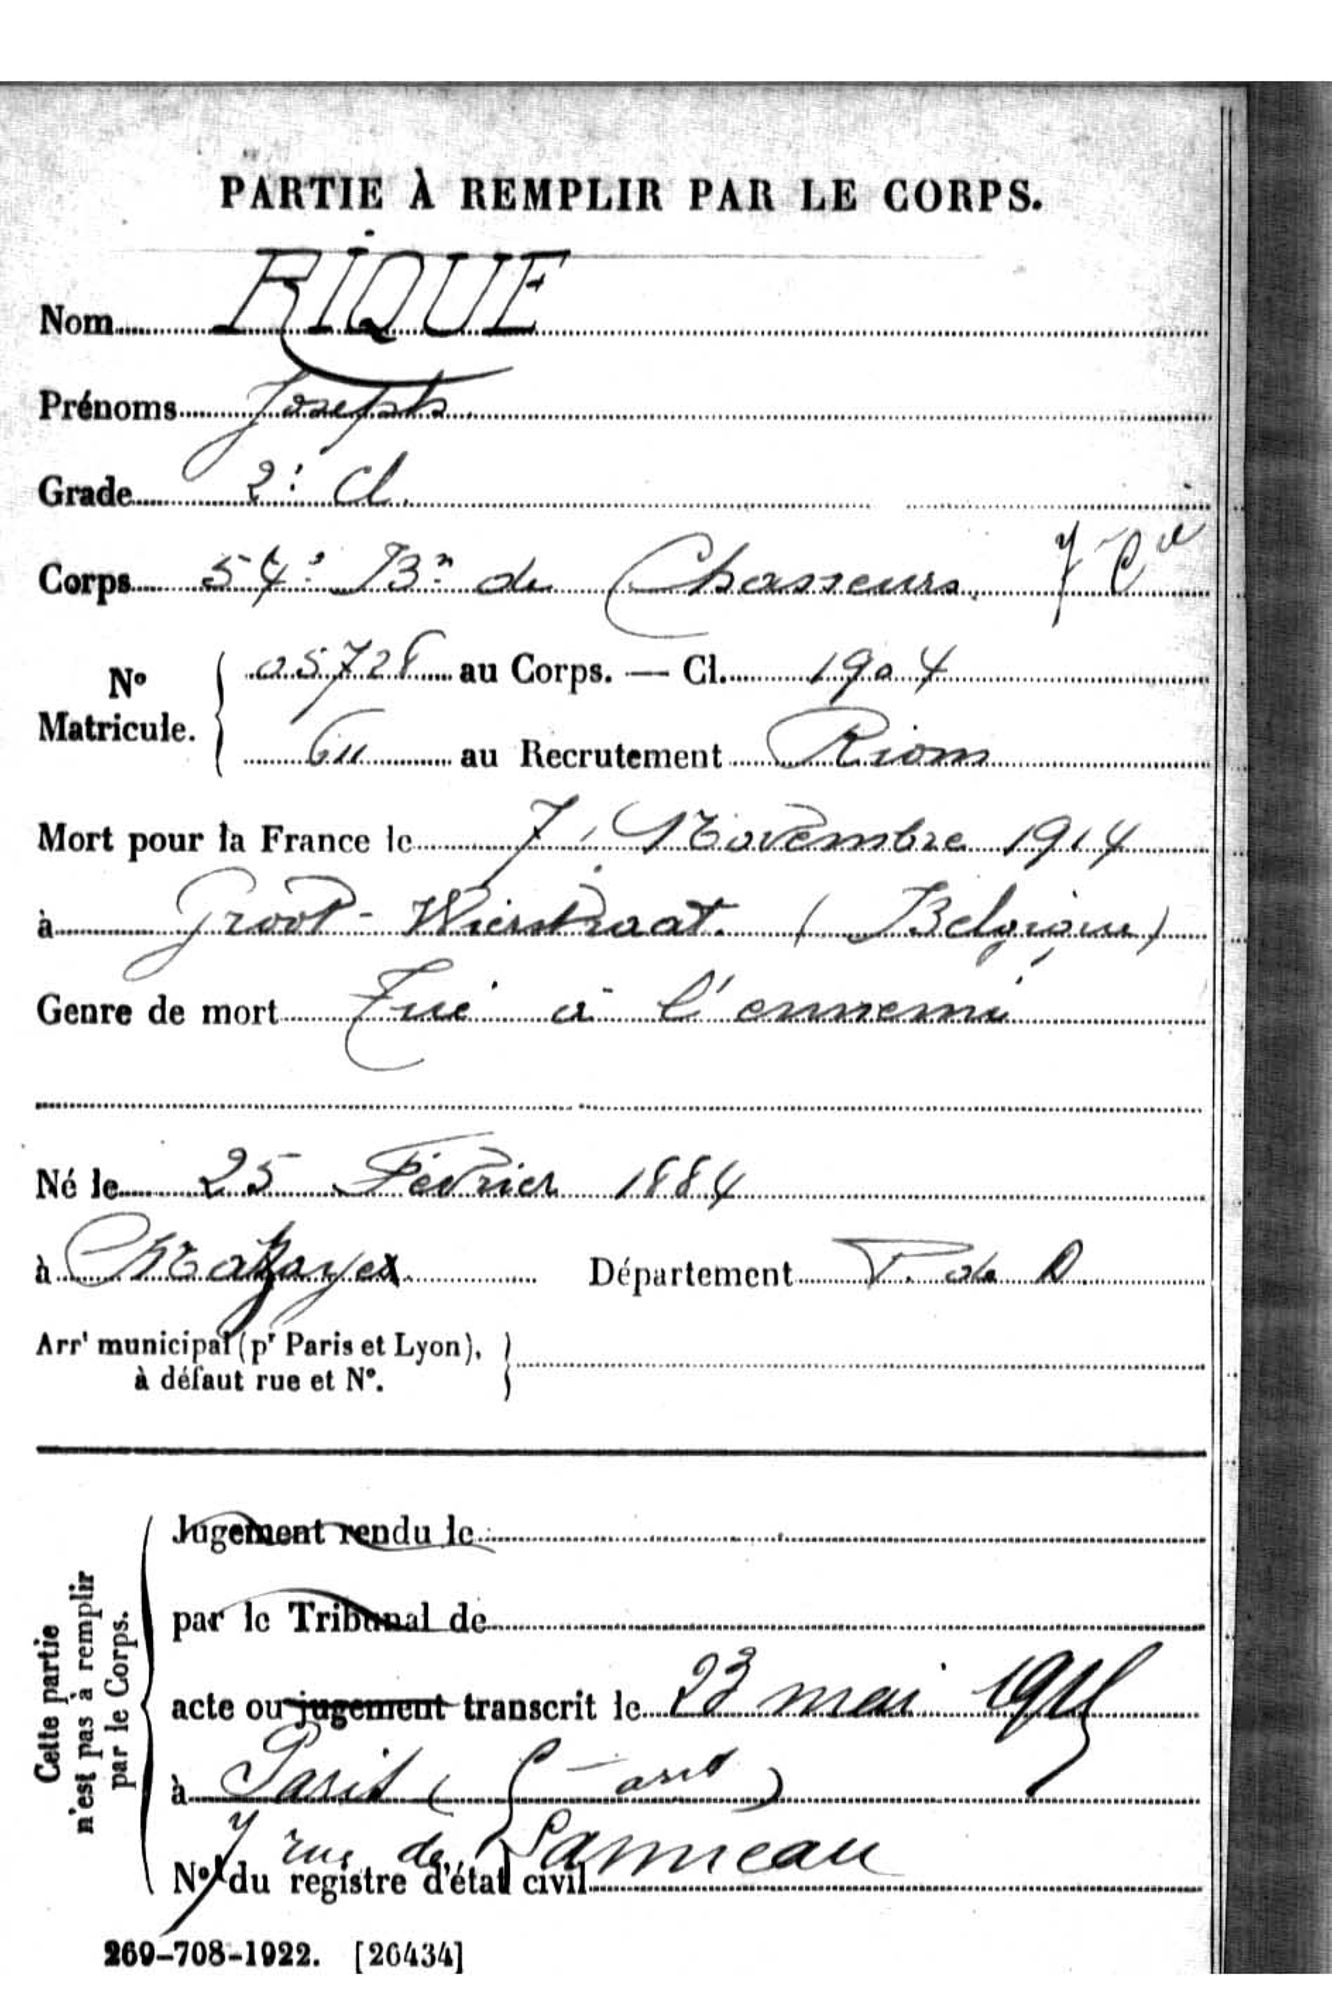 PARTIE À REMPLIR PAR LE CORPS.
Nom RIQUE
Prénoms Joseph
Grade 2e Cl.
Corps 54e Bn de Chasseurs 7e Cie
No Matricule. 05728 au Corps. — Cl. 1904
611 au Recrutement Riom
Mort pour la France le 7 Novembre 1914
à Groot-Wierstraat (Belgique)
Genre de mort Tué à l'ennemi
Né le 25 Février 1884
à Département P. de D.
Arrt municipal (pr Paris et Lyon),
à défaut rue et N°.
Cette partie
n'est pas à remplir
par le Corps.
Jugement rendu le
par le Tribunal de
acte ou jugement transcrit le 23 mai 1915
à Paris ( arrt )
7 rue de Lanneau
N° du registre d'état civil
269-708-1922. [26434]